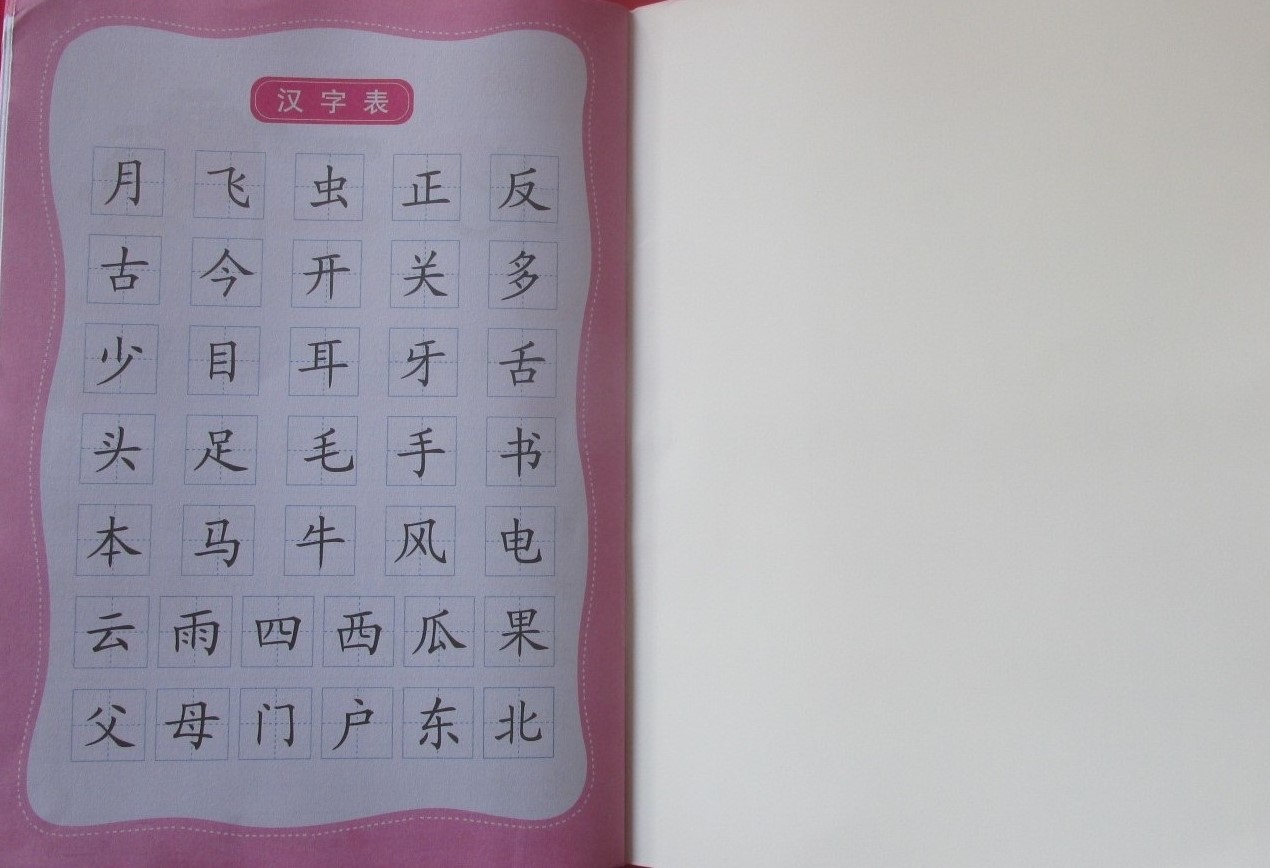 汉字表
月 飞 虫 正 反
古 今 开 关 多
少 目 耳 牙 舌
头 足 毛 手 书
本 马 牛 风 电
云 雨 四 西 瓜 果
父 母 门 户 东 北